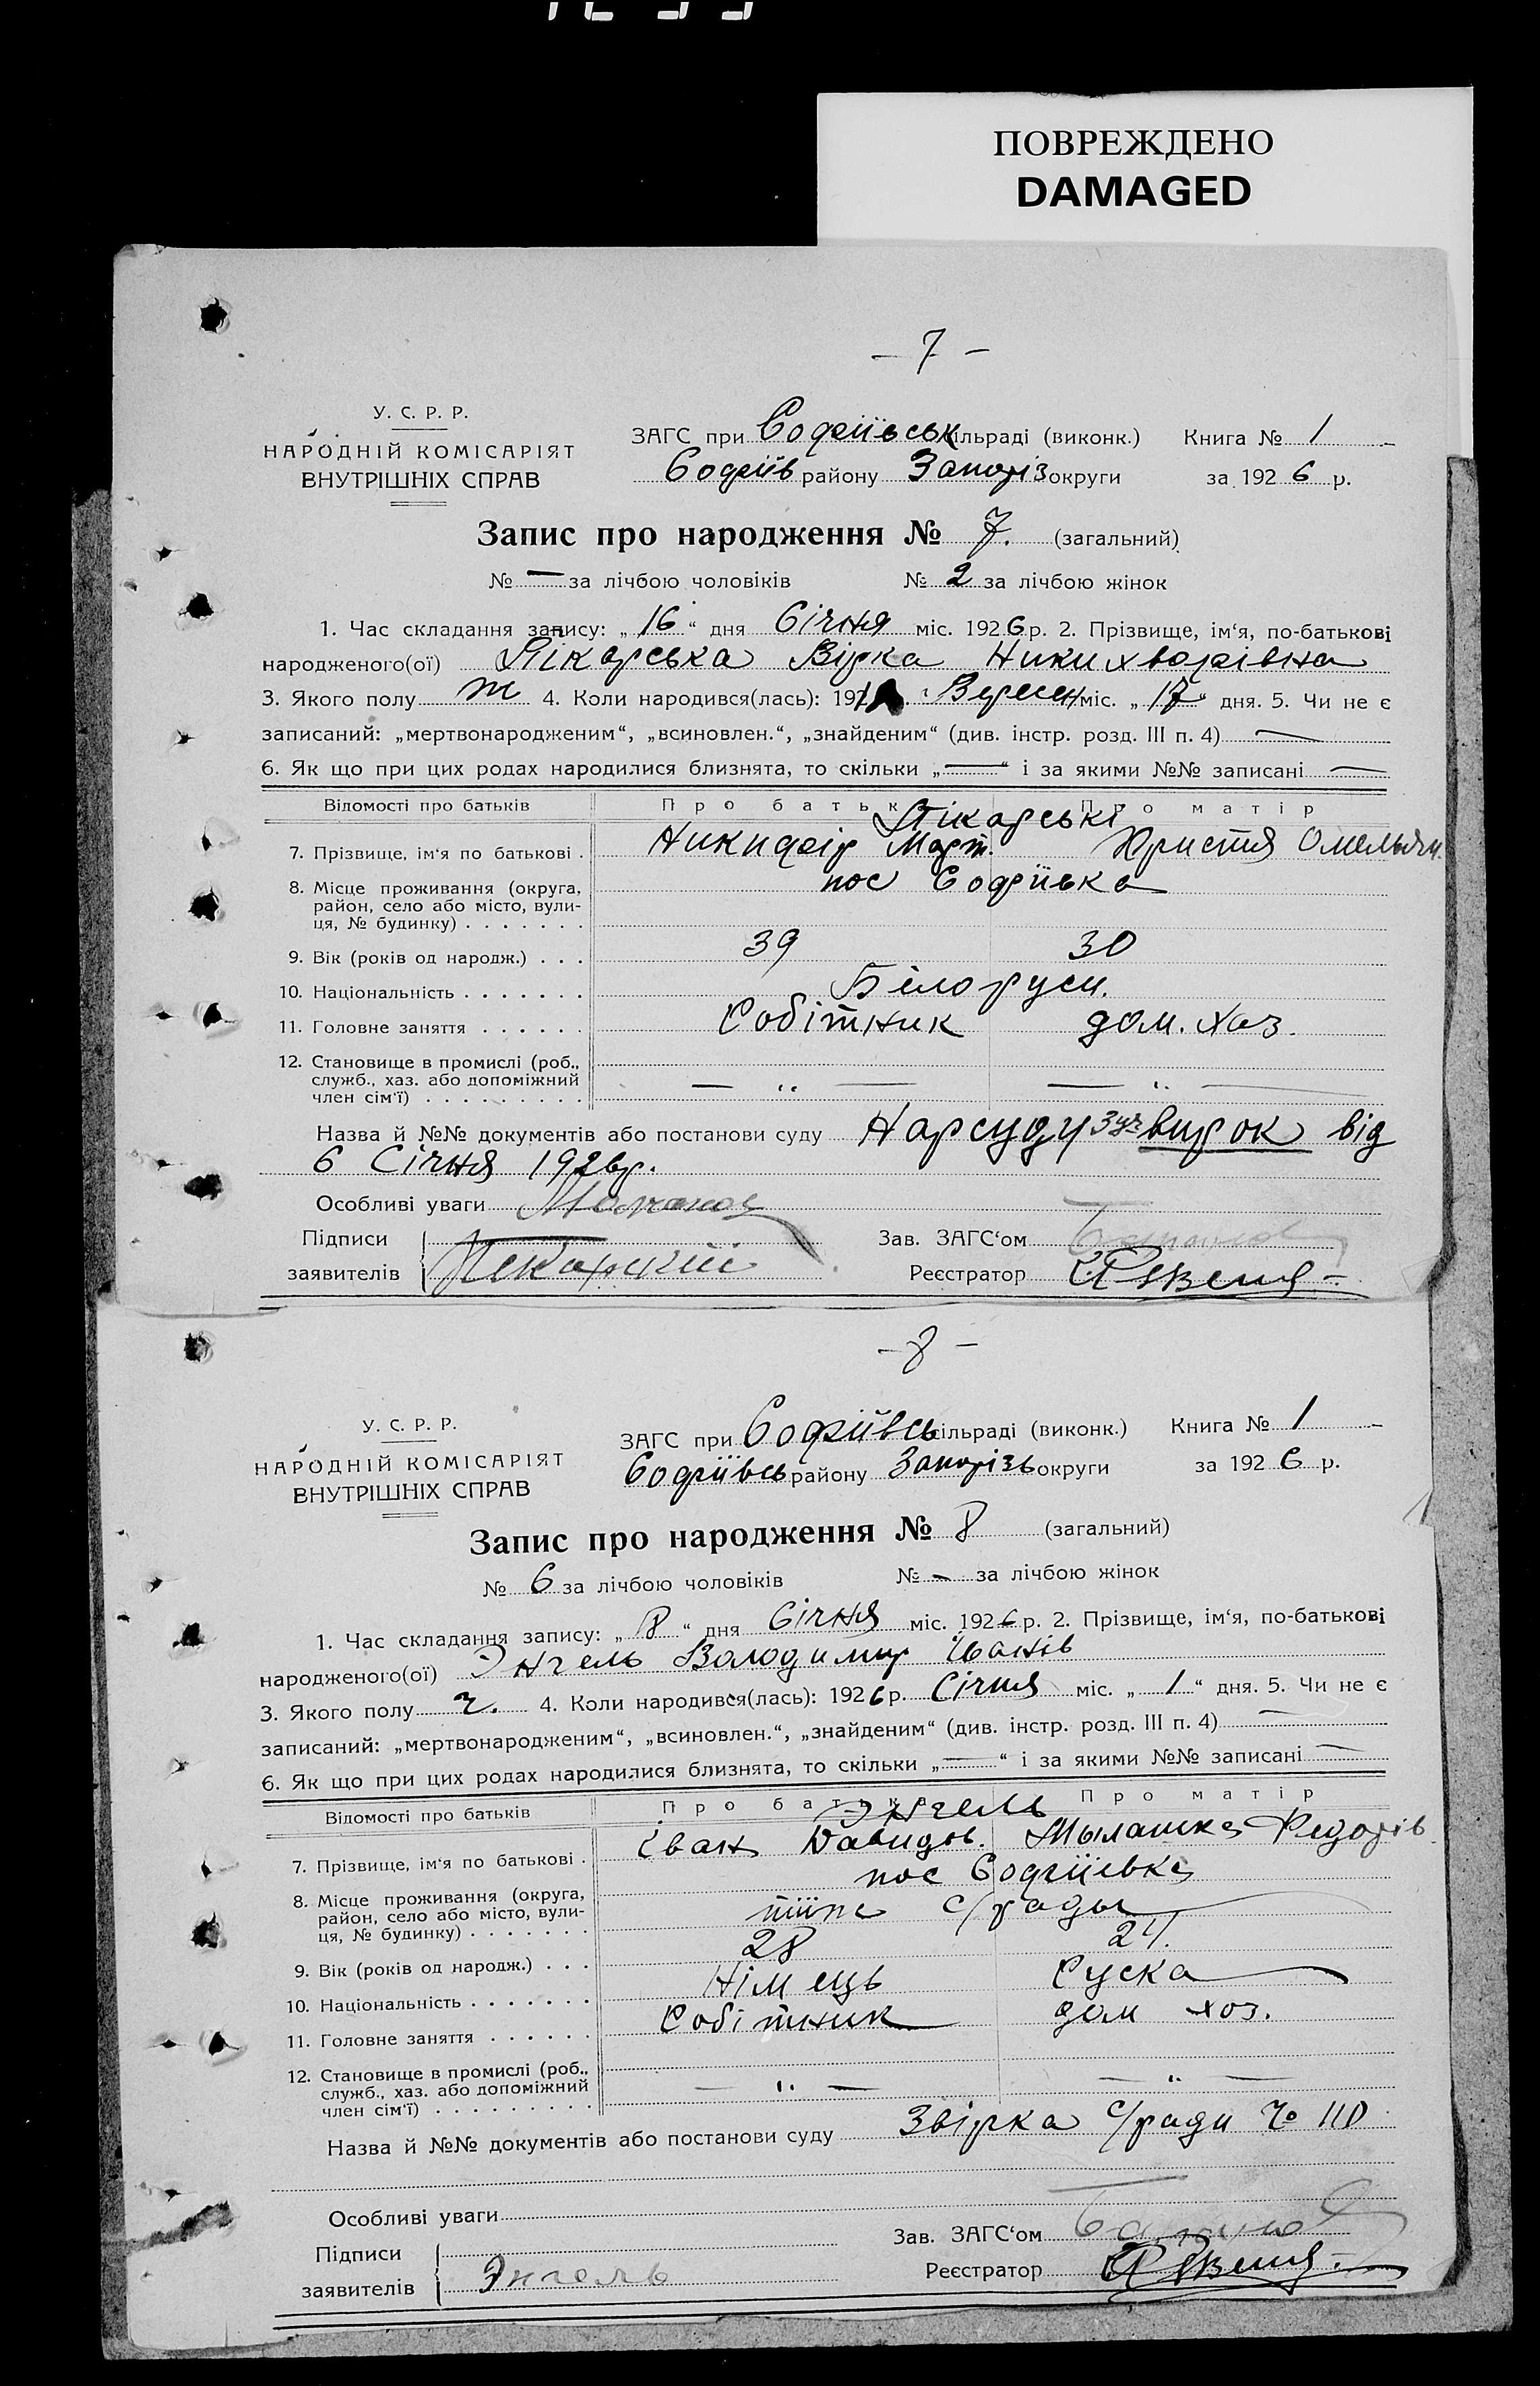 ПОВРЕЖДЕНО
DAMAGED
– 7 –
У. С. Р. Р.
НАРОДНІЙ КОМІСАРІЯТ
ВНУТРІШНІХ СПРАВ
ЗАГС при Софіївськ сільраді (виконк.) Книга № 1
Софіїв району Запоріз округи за 1926 р.
Запис про народження № 7. (загальний)
№ — за лічбою чоловіків № 2 за лічбою жінок
1. Час складання запису: „16“ дня Січня міс. 1926 р. 2. Прізвище, ім‘я, по-батькові
народженого(ої) Пікарська Вірка Никихворівна
3. Якого полу ж 4. Коли народився(лась): 192 Вересн міс. „17“ дня. 5. Чи не є
записаний: „мертвонародженим“, „всиновлен.“, „знайденим“ (див. інстр. розд. III п. 4) —
6. Як що при цих родах народилися близнята, то скільки „—“ і за якими №№ записані —
Відомості про батьків Про батька Про матір
Пікарські
7. Прізвище, ім‘я по батькові . Никифір Март. Христя Омельян.
8. Місце проживання (округа, пос Софіївка
район, село або місто, вули-
ця, № будинку) . . . . . . .
9. Вік (років од народж.) . . . 39 30
10. Національність . . . . . . . Білоруси.
11. Головне заняття . . . . . . Собітник дом. хаз.
12. Становище в промислі (роб.,
служб., хаз. або допоміжний — „ — — „ —
член сім‘ї) . . . . . . . . .
Назва й №№ документів або постанови суду Нарсуду 3 уч вирок від
6 Січня 1926 р.
Особливі уваги
Підписи Зав. ЗАГС‘ом
заявителів Пекарский Реєстратор
– 8 –
У. С. Р. Р.
НАРОДНІЙ КОМІСАРІЯТ
ВНУТРІШНІХ СПРАВ
ЗАГС при Софіївсь сільраді (виконк.) Книга № 1
Софіївсь району Запорізь округи за 1926 р.
Запис про народження № 8 (загальний)
№ 6 за лічбою чоловіків № — за лічбою жінок
1. Час складання запису: „8“ дня Січня міс. 1926 р. 2. Прізвище, ім‘я, по-батькові
народженого(ої) Энгель Володимир Іванів
3. Якого полу ч. 4. Коли народився(лась): 1926 р. Січня міс. „1“ дня. 5. Чи не є
записаний: „мертвонародженим“, „всиновлен.“, „знайденим“ (див. інстр. розд. III п. 4) —
6. Як що при цих родах народилися близнята, то скільки „—“ і за якими №№ записані —
Відомості про батьків Про батька Про матір
Энгель
7. Прізвище, ім‘я по батькові . Іван Давидов. Мылашка Федорів
8. Місце проживання (округа, пос Софіївка
район, село або місто, вули- с/рады
ця, № будинку) . . . . . . .
9. Вік (років од народж.) . . . 28
10. Національність . . . . . . . Німець Руска
11. Головне заняття . . . . . . Собітник дом хоз.
12. Становище в промислі (роб.,
служб., хаз. або допоміжний — „ — — „ —
член сім‘ї) . . . . . . . . .
Назва й №№ документів або постанови суду Звірка с/ради № 110
Особливі уваги
Підписи Зав. ЗАГС‘ом
заявителів Энгель Реєстратор